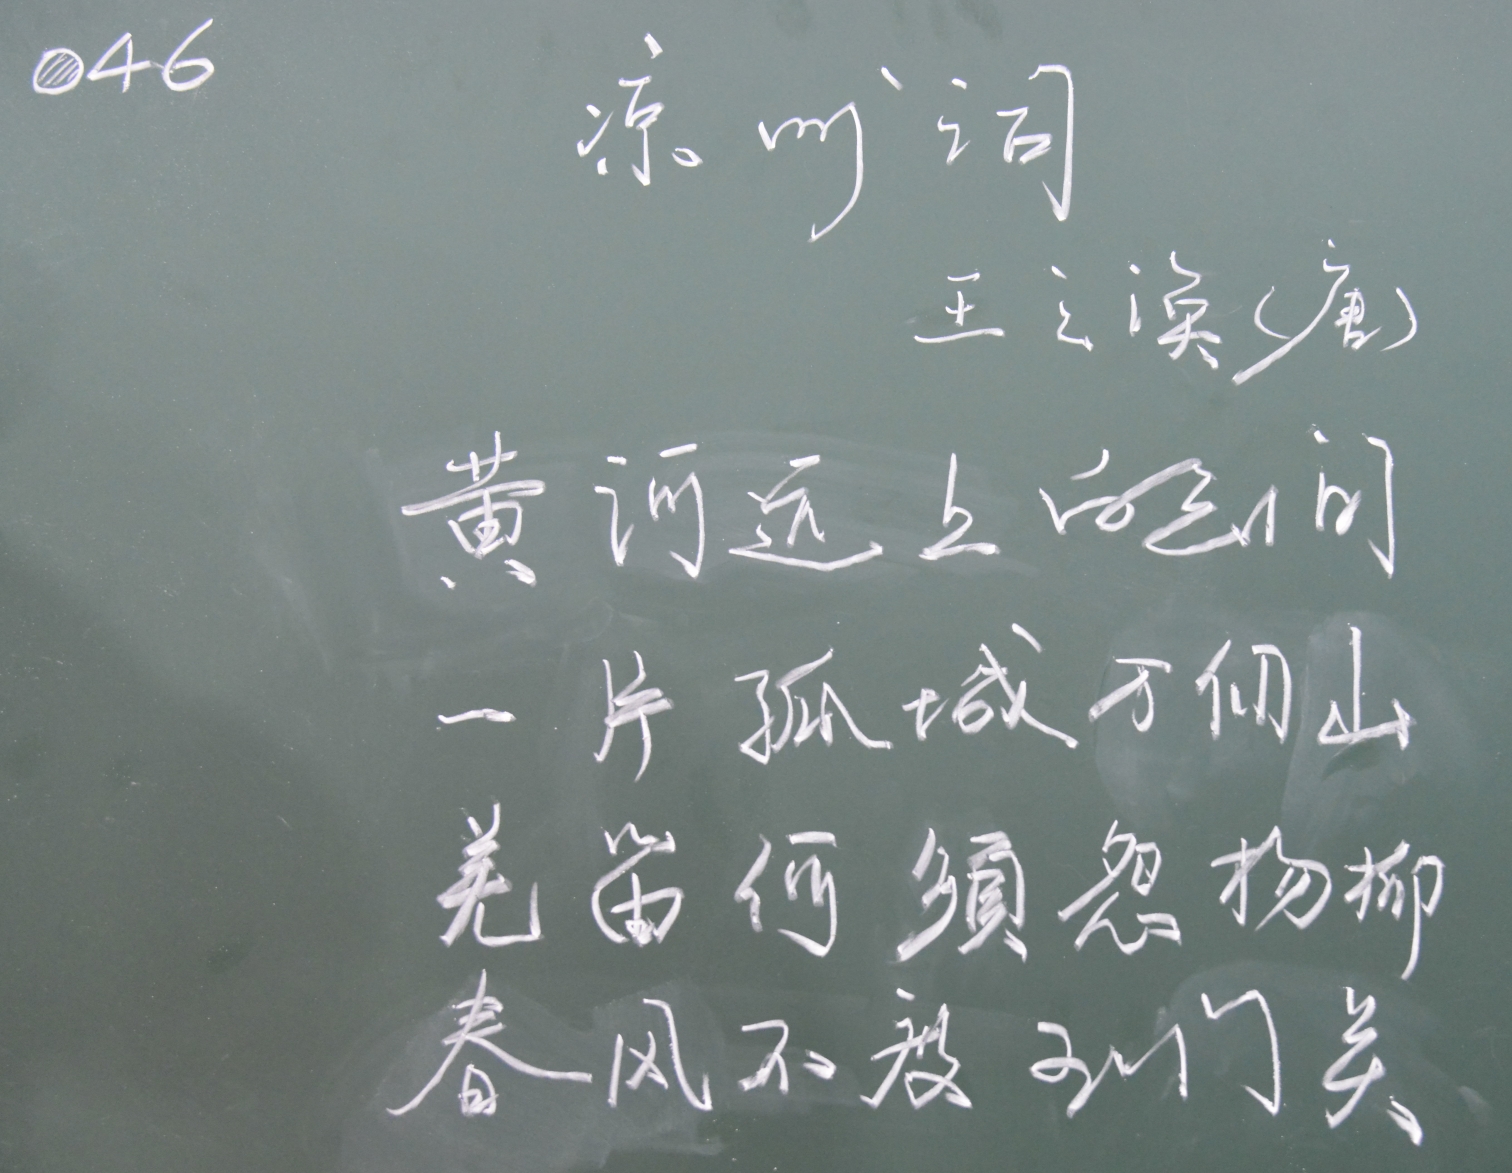 046
凉州词
王之涣(唐)
黄河远上白云间
一片孤城万仞山
羌笛何須怨杨柳
春风不度玉门关